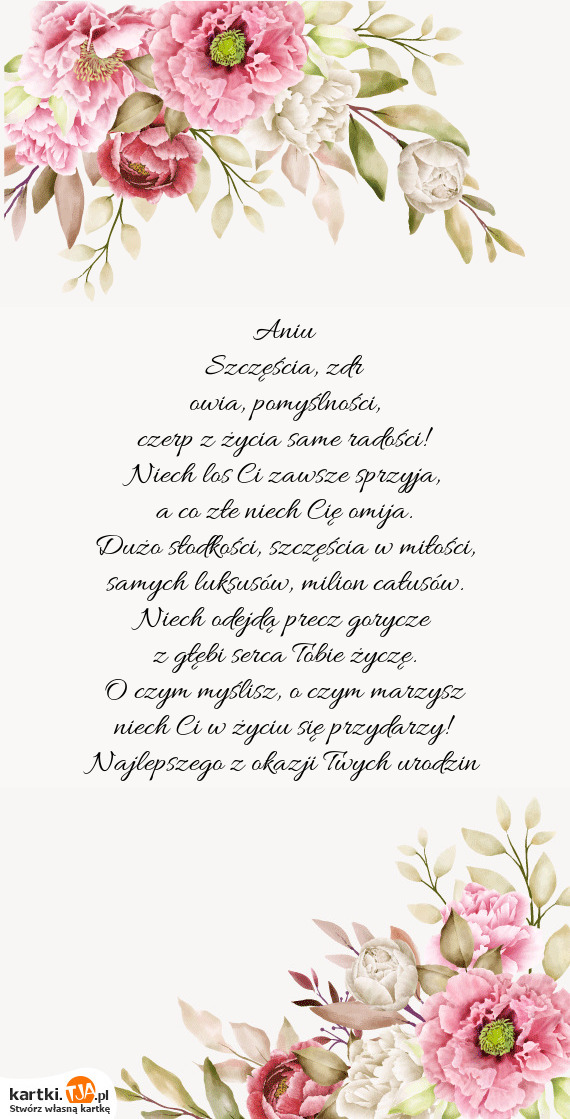 Aniu
Szczęścia, zdr
owia, pomyślności,
czerp z życia same radości!
Niech los Ci zawsze sprzyja,
a co złe niech Cię omija.
Dużo słodkości, szczęścia w miłości,
samych luksusów, milion całusów.
Niech odejdą precz gorycze
z głębi serca Tobie życzę.
O czym myślisz, o czym marzysz
niech Ci w życiu się przydarzy!
Najlepszego z okazji Twych urodzin
kartki.TJA.pl
Stwórz własną kartkę